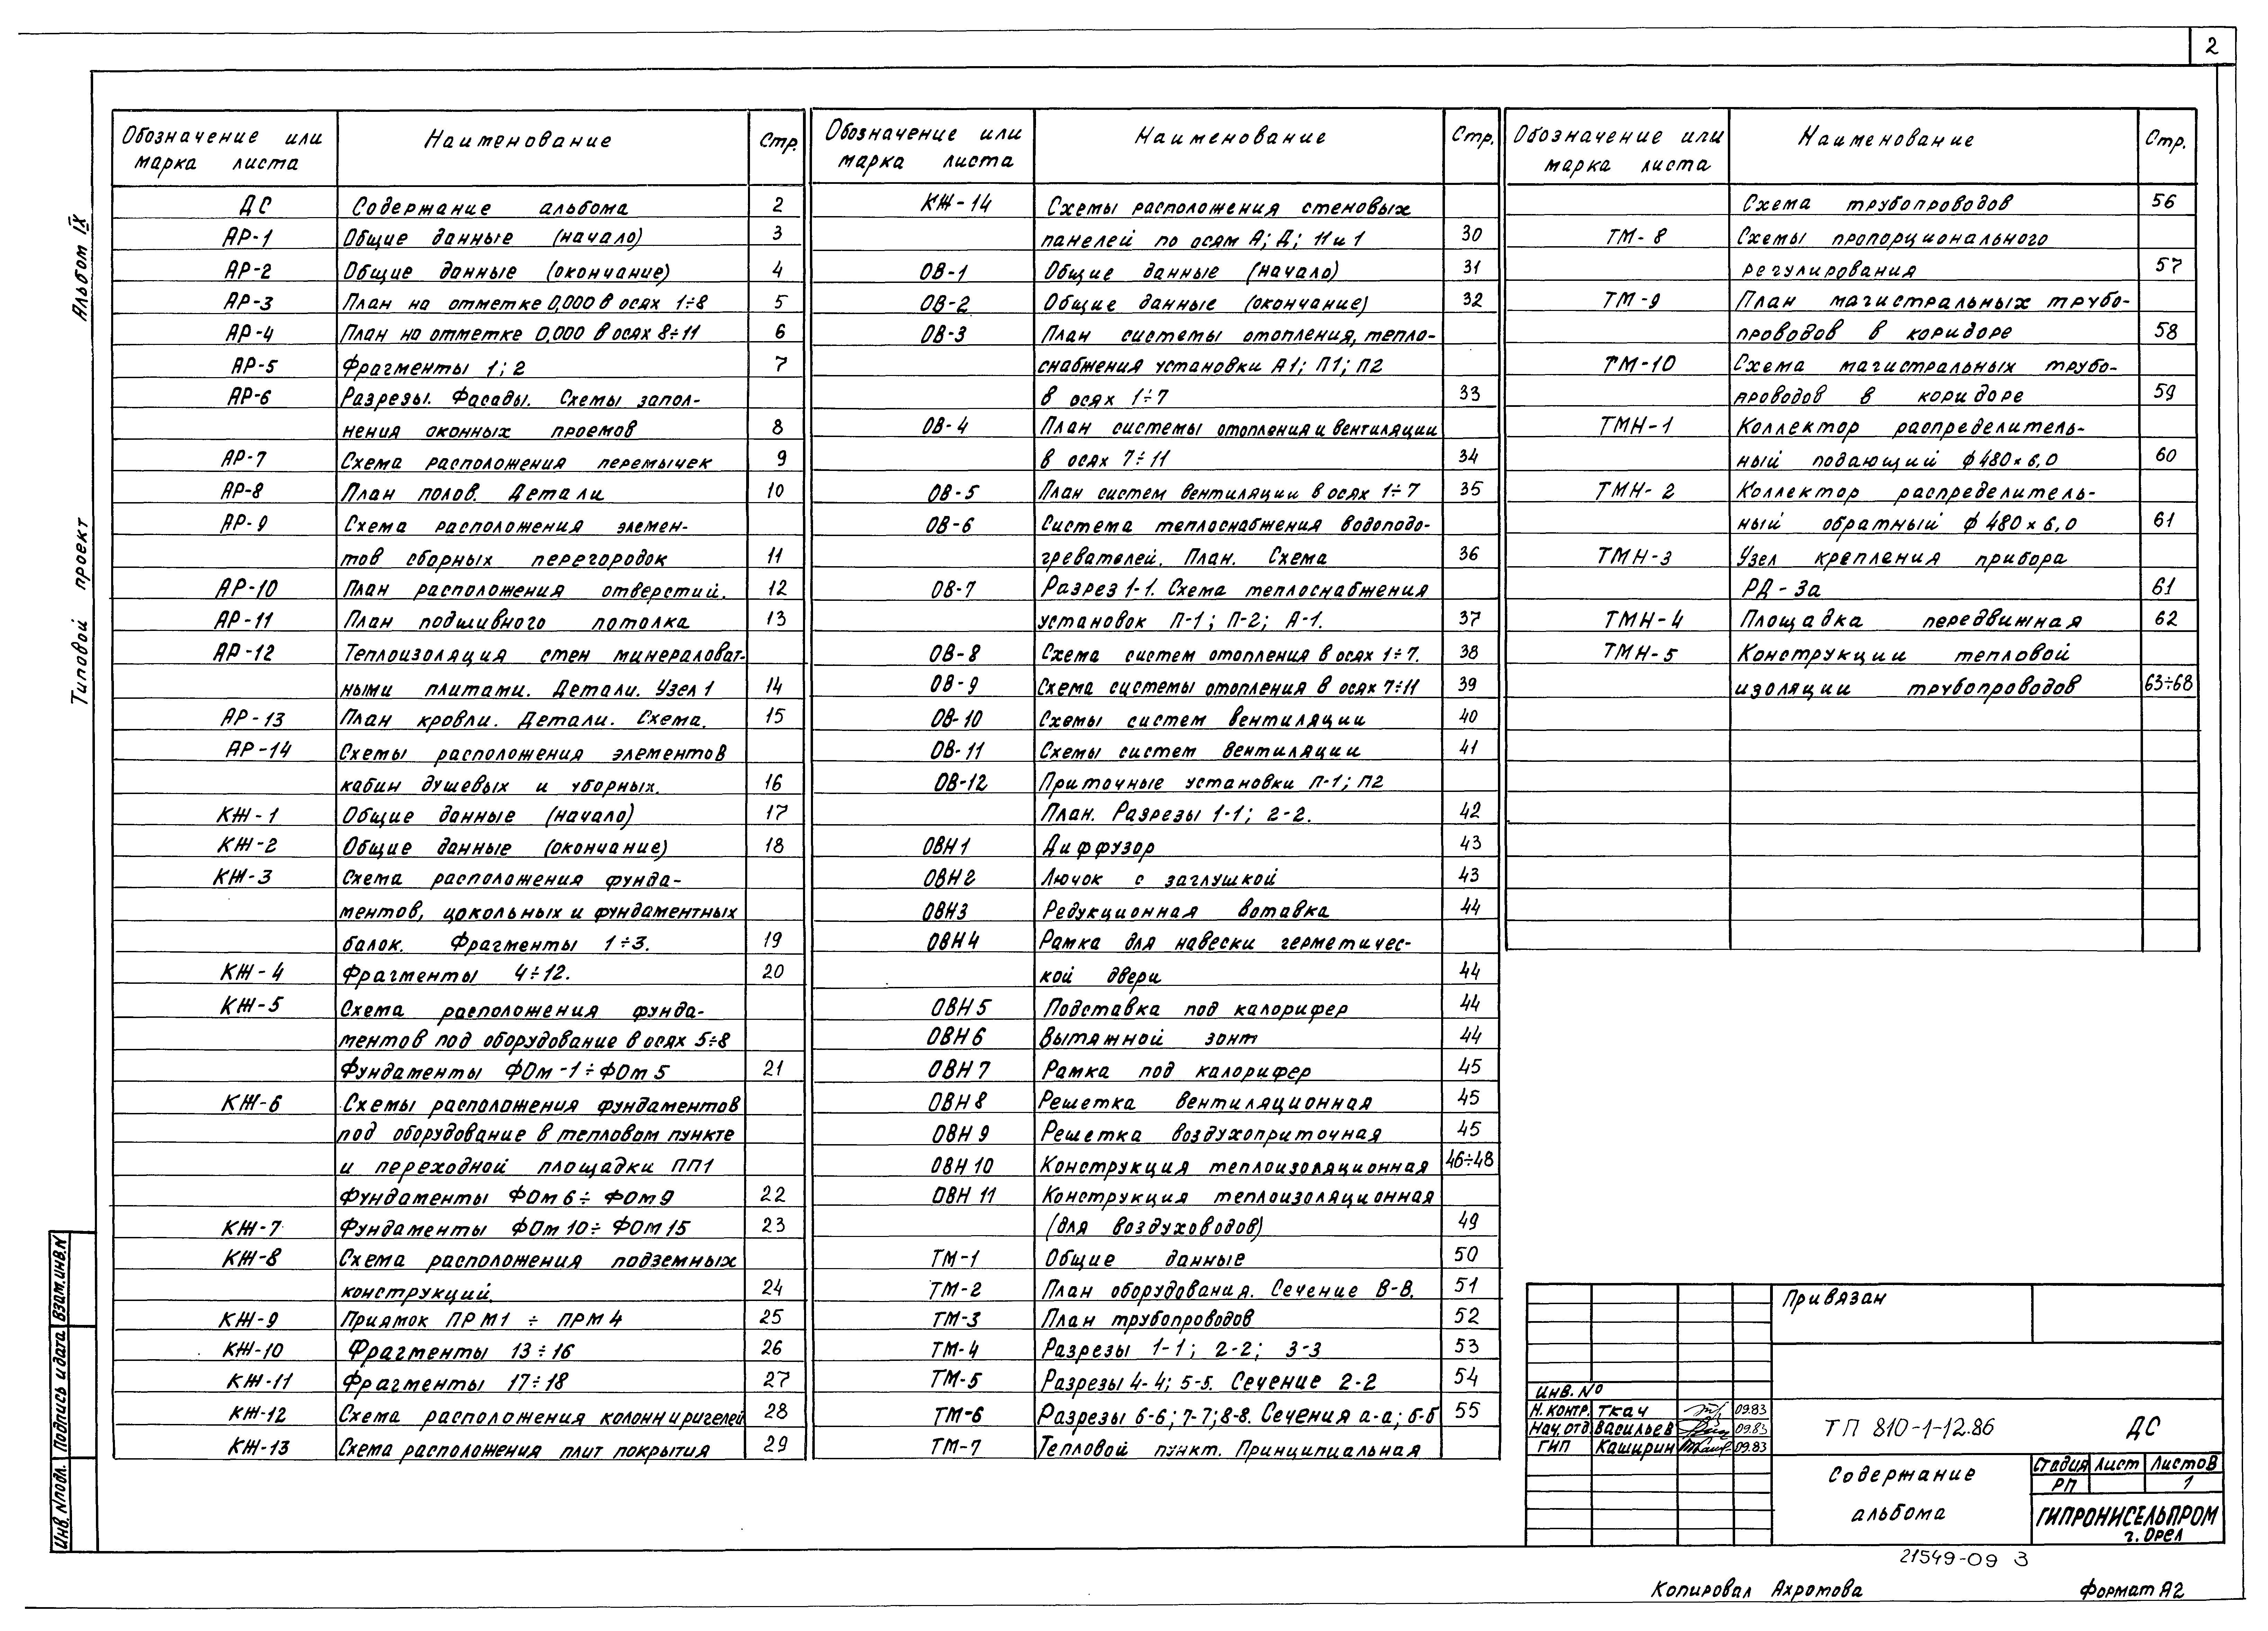 2
Альбом IX
Типовой проект
Обозначение или марка листа Наименование Стр.
ДС Содержание альбома 2
АР-1 Общие данные (начало) 3
АР-2 Общие данные (окончание) 4
АР-3 План на отметке 0,000 в осях 1÷8 5
АР-4 План на отметке 0,000 в осях 8÷11 6
АР-5 Фрагменты 1; 2 7
АР-6 Разрезы. Фасады. Схемы запол-
нения оконных проемов 8
АР-7 Схема расположения перемычек 9
АР-8 План полов. Детали 10
АР-9 Схема расположения элемен-
тов сборных перегородок 11
АР-10 План расположения отверстий. 12
АР-11 План подшивного потолка 13
АР-12 Теплоизоляция стен минераловат-
ными плитами. Детали. Узел 1 14
АР-13 План кровли. Детали. Схема. 15
АР-14 Схемы расположения элементов
кабин душевых и уборных. 16
КЖ-1 Общие данные (начало) 17
КЖ-2 Общие данные (окончание) 18
КЖ-3 Схема расположения фунда-
ментов, цокольных и фундаментных
балок. Фрагменты 1÷3. 19
КЖ-4 Фрагменты 4÷12. 20
КЖ-5 Схема расположения фунда-
ментов под оборудование в осях 5÷8
Фундаменты ФОм-1÷ФОм5 21
КЖ-6 Схемы расположения фундаментов
под оборудование в тепловом пункте
и переходной площадки ПП1
Фундаменты ФОм6÷ ФОм9 22
КЖ-7 Фундаменты ФОм10÷ ФОм15 23
КЖ-8 Схема расположения подземных
конструкций. 24
КЖ-9 Приямок ПРМ1 ÷ ПРМ4 25
КЖ-10 Фрагменты 13÷16 26
КЖ-11 Фрагменты 17÷18 27
КЖ-12 Схема расположения колонн и ригелей 28
КЖ-13 Схема расположения плит покрытия 29
Обозначение или марка листа Наименование Стр.
КЖ-14 Схемы расположения стеновых
панелей по осям А; Д; 11 и 1 30
ОВ-1 Общие данные (начало) 31
ОВ-2 Общие данные (окончание) 32
ОВ-3 План системы отопления, тепло-
снабжения установки А1; П1; П2
в осях 1÷7 33
ОВ-4 План системы отопления и вентиляции
в осях 7÷11 34
ОВ-5 План систем вентиляции в осях 1÷7 35
ОВ-6 Система теплоснабжения водоподо-
гревателей. План. Схема 36
ОВ-7 Разрез 1-1. Схема теплоснабжения
установок П-1; П-2; А-1. 37
ОВ-8 Схема систем отопления в осях 1÷7. 38
ОВ-9 Схема системы отопления в осях 7÷11 39
ОВ-10 Схемы систем вентиляции 40
ОВ-11 Схемы систем вентиляции 41
ОВ-12 Приточные установки П-1; П2
План. Разрезы 1-1; 2-2. 42
ОВН1 Диффузор 43
ОВН2 Лючок с заглушкой 43
ОВН3 Редукционная вотавка 44
ОВН4 Рамка для навески герметичес-
кой двери 44
ОВН5 Подставка под калорифер 44
ОВН6 Вытяжной зонт 44
ОВН7 Рамка под калорифер 45
ОВН8 Решетка вентиляционная 45
ОВН9 Решетка воздухоприточная 45
ОВН10 Конструкция теплоизоляционная 46÷48
ОВН11 Конструкция теплоизоляционная
(для воздуховодов) 49
ТМ-1 Общие данные 50
ТМ-2 План оборудования. Сечение В-В. 51
ТМ-3 План трубопроводов 52
ТМ-4 Разрезы 1-1; 2-2; 3-3 53
ТМ-5 Разрезы 4-4; 5-5. Сечение 2-2 54
ТМ-6 Разрезы 6-6; 7-7; 8-8. Сечения а-а; б-б 55
ТМ-7 Тепловой пункт. Принципиальная
Обозначение или марка листа Наименование Стр.
Схема трубопроводов 56
ТМ-8 Схемы пропорционального
регулирования 57
ТМ-9 План магистральных трубо-
проводов в коридоре 58
ТМ-10 Схема магистральных трубо-
проводов в коридоре 59
ТМН-1 Коллектор распределитель-
ный подающий ф480×6,0 60
ТМН-2 Коллектор распределитель-
ный обратный ф480×6,0 61
ТМН-3 Узел крепления прибора
РД-3а 61
ТМН-4 Площадка передвижная 62
ТМН-5 Конструкции тепловой
изоляции трубопроводов 63÷68
Взам.инв.N
Подпись и дата
Инв. N подл.
Привязан
Инв. №
Н. контр. Ткач 09.83
Нач. отд Васильев 09.83
ГИП Каширин 09.83
ТП 810-1-12.86 ДС
Содержание альбома
Стадия Лист Листов
РП 1
ГИПРОНИСЕЛЬПРОМ
г. Орел
21549-09 3
Копировал Ахромова Формат А2